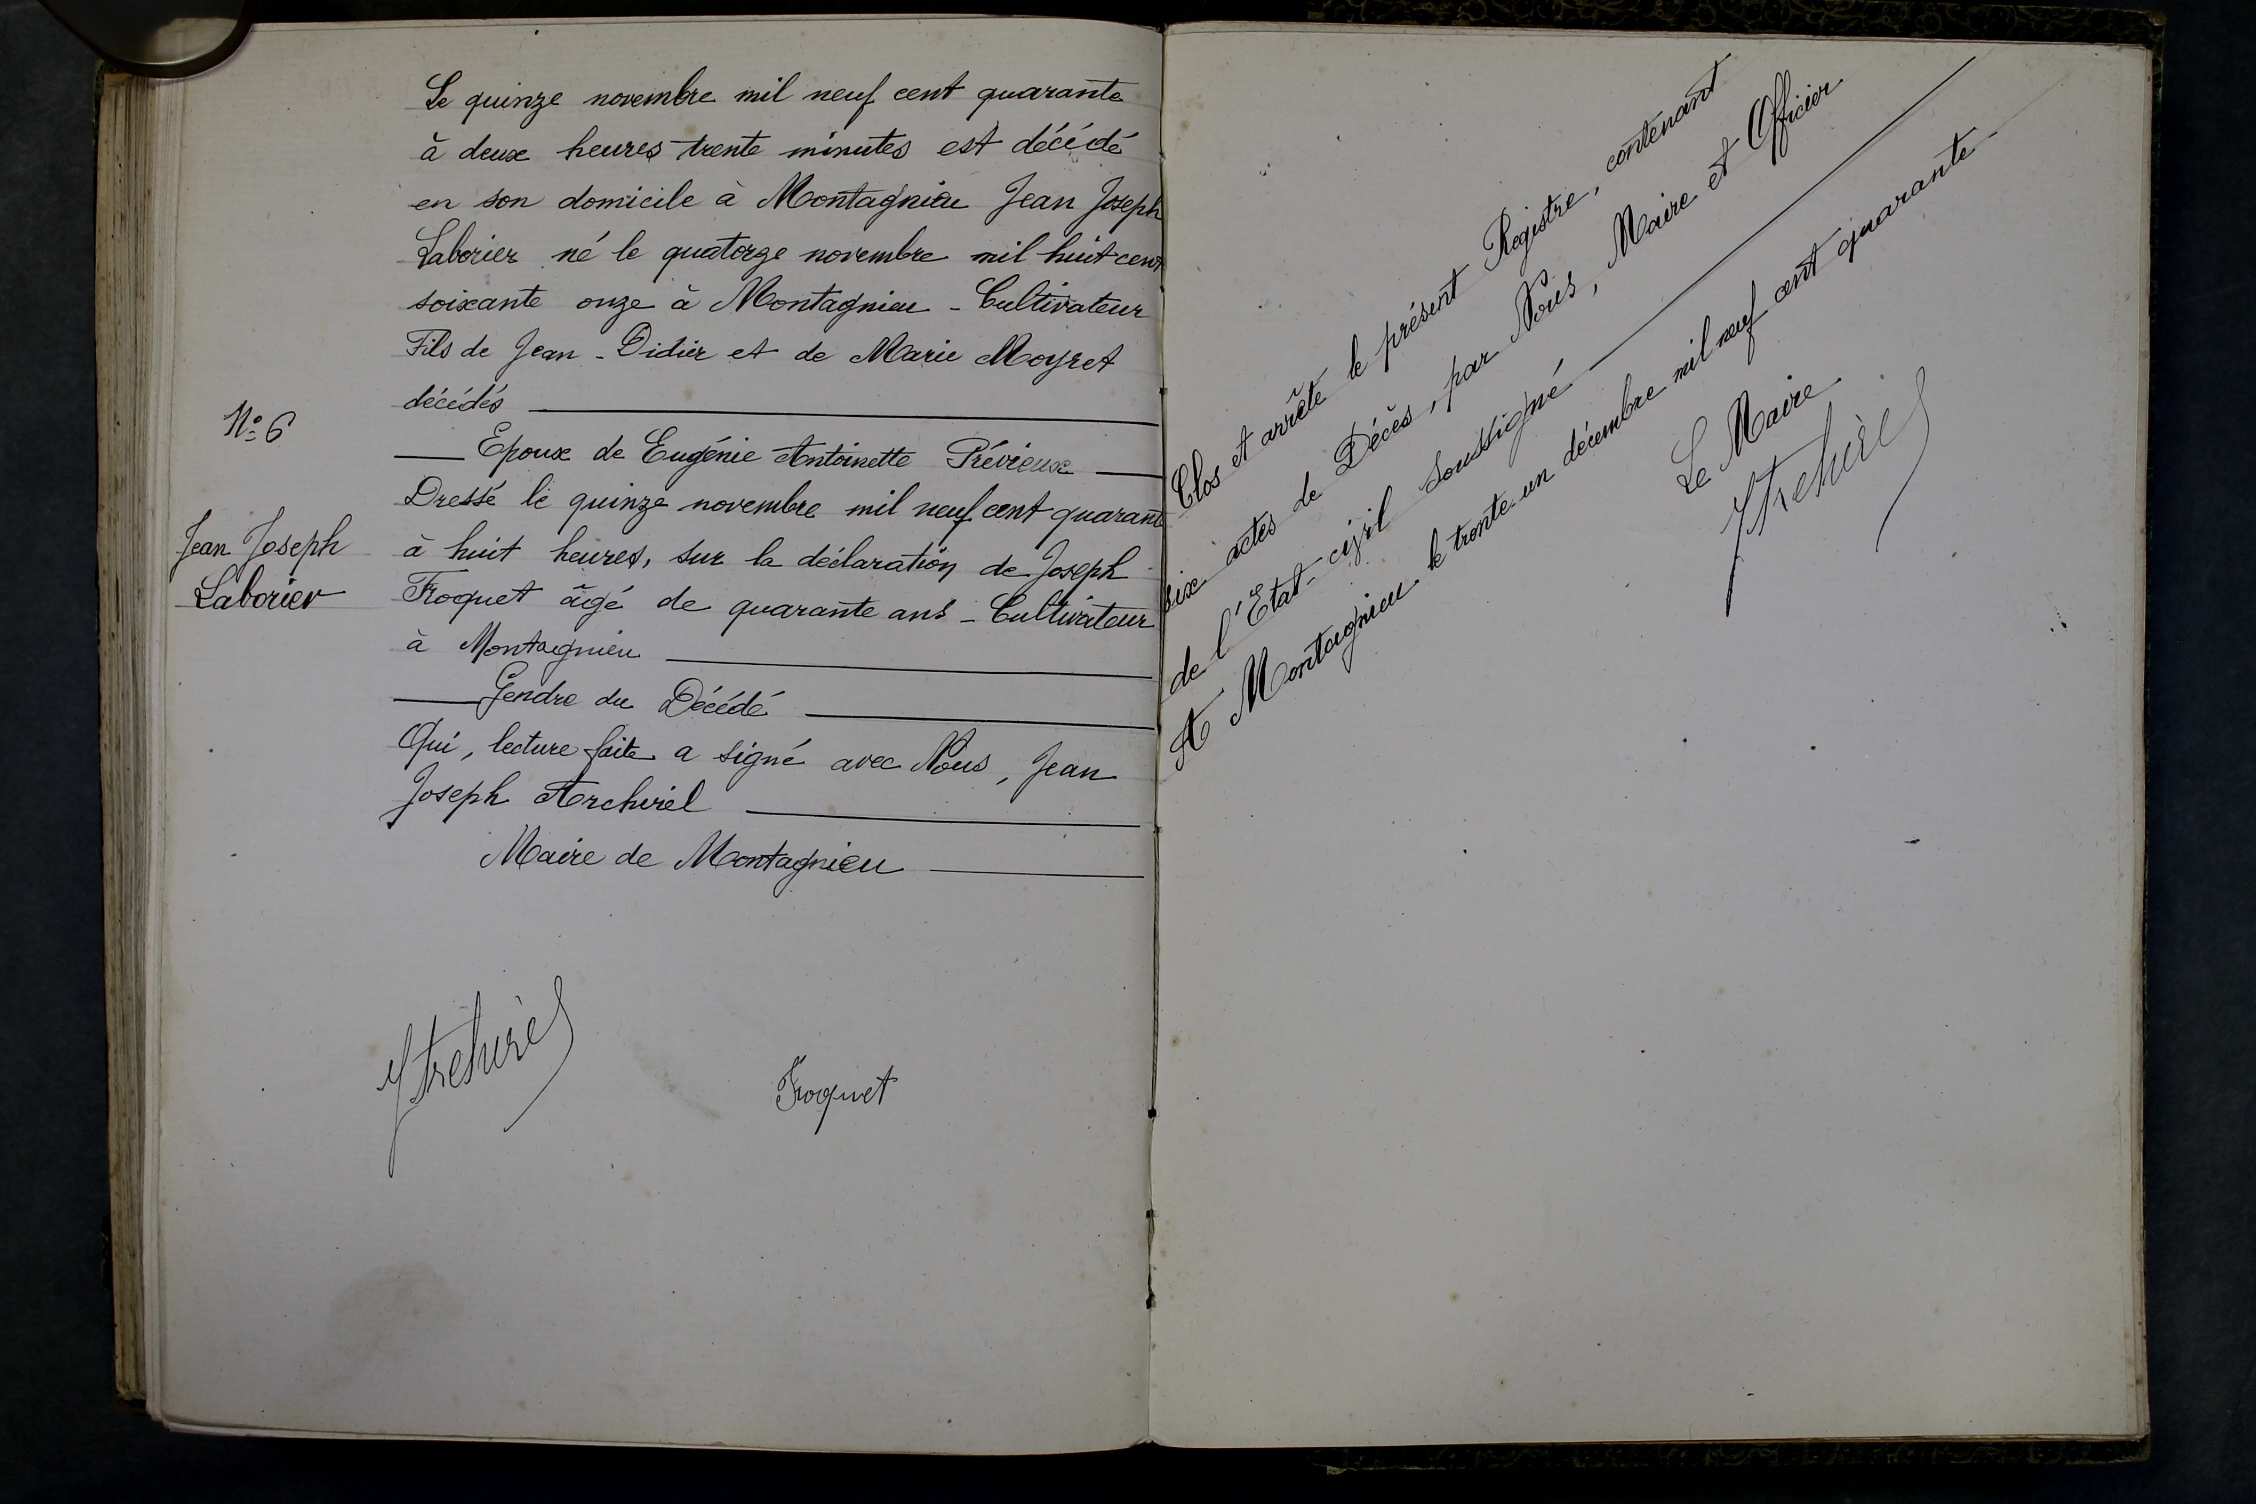 N° 6
Jean Joseph
Laborier
Le quinze novembre mil neuf cent quarante
à deux heures trente minutes est décédé
en son domicile à Montagnieu Jean Joseph
Laborier né le quatorze novembre mil huit cent
soixante onze à Montagnieu - Cultivateur
Fils de Jean - Didier et de Marie Moyret
décédés
Epoux de Eugénie Antoinette Prévieux
Dressé le quinze novembre mil neuf cent quarante
à huit heures, sur la déclaration de Joseph
Froquet âgé de quarante ans - Cultivateur
à Montagnieu
Gendre du Décédé
Qui, lecture faite a signé avec Nous, Jean
Joseph Archirel
Maire de Montagnieu
Froquet
Clos et arrêté le présent Registre, contenant
six actes de Décès, par Nous, Maire et Officier
de l'Etat-civil soussigné
A Montagnieu le trente un décembre mil neuf cent quarante
Le Maire